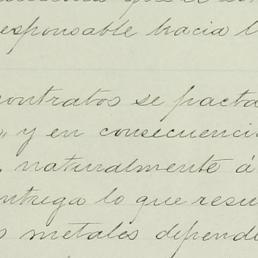 responsable hacia l
contratos se pacta
y en consecuenci
naturalmente á
ntrega lo que resu
s metales depende